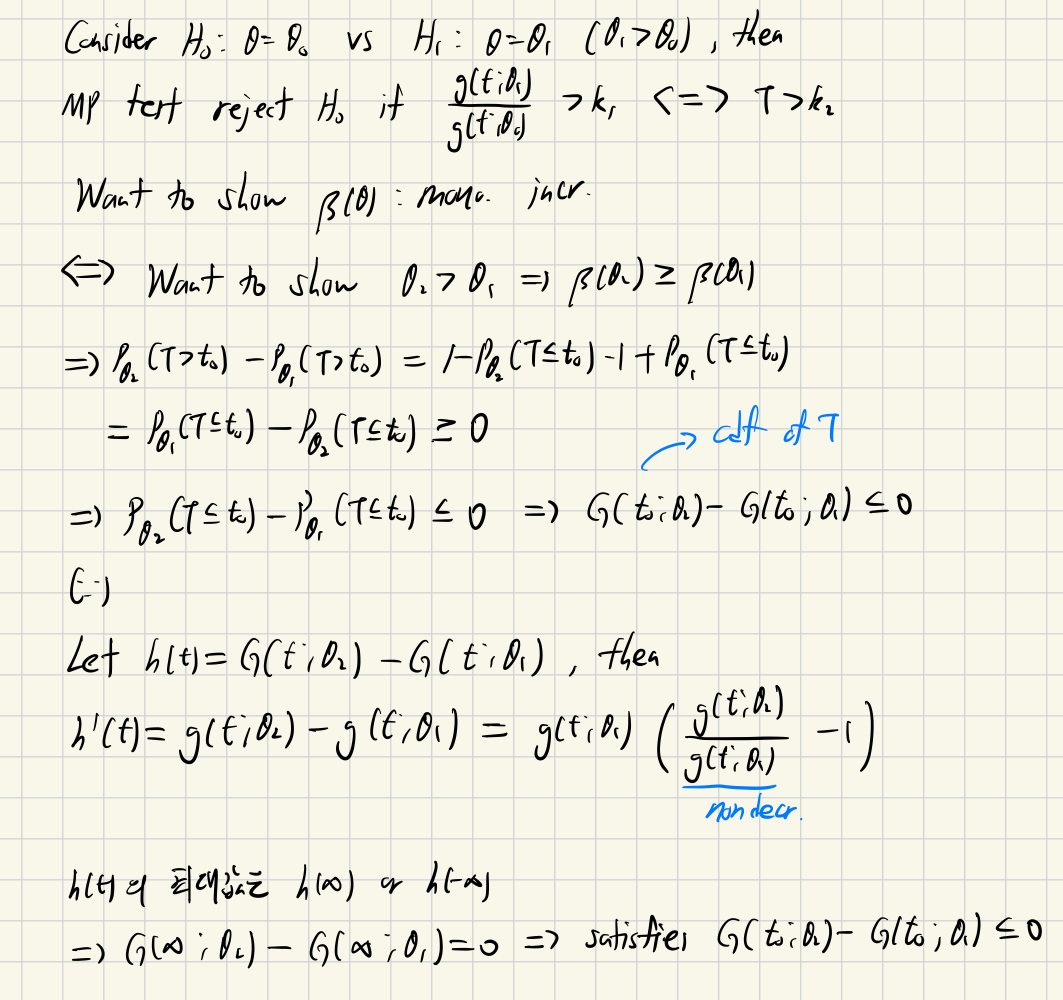 Consider H₀: θ=θ₀ vs H₁: θ=θ₁ (θ₁>θ₀), then
MP test reject H₀ if g(t;θ₁)/g(t;θ₀) > k₁ <=> T>k₂
Want to show β(θ): mono. incr.
<=> Want to show θ₂>θ₁ => β(θ₂) ≥ β(θ₁)
=> P_θ₂(T>t₀) - P_θ₁(T>t₀) = 1-P_θ₂(T≤t₀)-1+P_θ₁(T≤t₀)
= P_θ₁(T≤t₀) - P_θ₂(T≤t₀) ≥ 0
cdf of T
=> P_θ₂(T≤t₀) - P_θ₁(T≤t₀) ≤ 0 => G(t₀;θ₂) - G(t₀;θ₁) ≤ 0
(∵)
Let h(t) = G(t;θ₂) - G(t;θ₁), then
h'(t) = g(t;θ₂) - g(t;θ₁) = g(t;θ₁) (g(t;θ₂)/g(t;θ₁) - 1)
nondecr.
h(t)의 최대값은 h(∞) or h(-∞)
=> G(∞;θ₂) - G(∞;θ₁)=0 => satisfies G(t₀;θ₂) - G(t₀;θ₁) ≤ 0